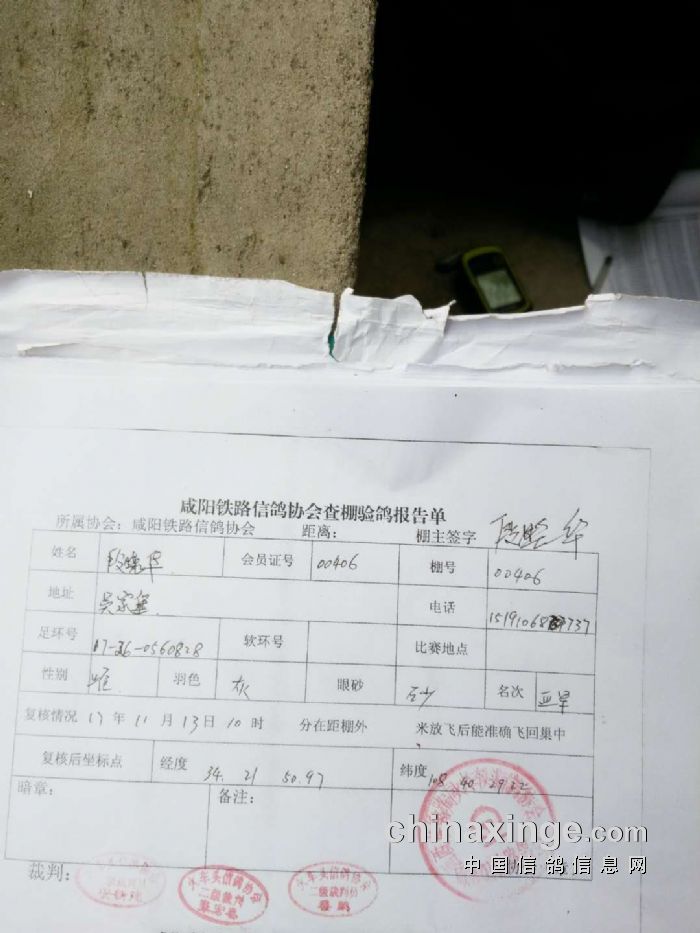 咸阳铁路信鸽协会查棚验鸽报告单
所属协会: 咸阳铁路信鸽协会 距离: 棚主签字
姓名 会员证号 00406 棚号 00406
地址 吴家堡 电话
足环号 17-26-0560828 软环号 比赛地点
性别 雌 羽色 灰 眼砂 砂 名次
复核情况 17 年 11 月 13 日 10 时 分在距棚外 米放飞后能准确飞回巢中
复核后坐标点 经度 34. 21 50.97 纬度 108 40 29.22
暗章: 备注:
chinaxinge.com
中国信鸽信息网
裁判: 二级裁判 二级裁判